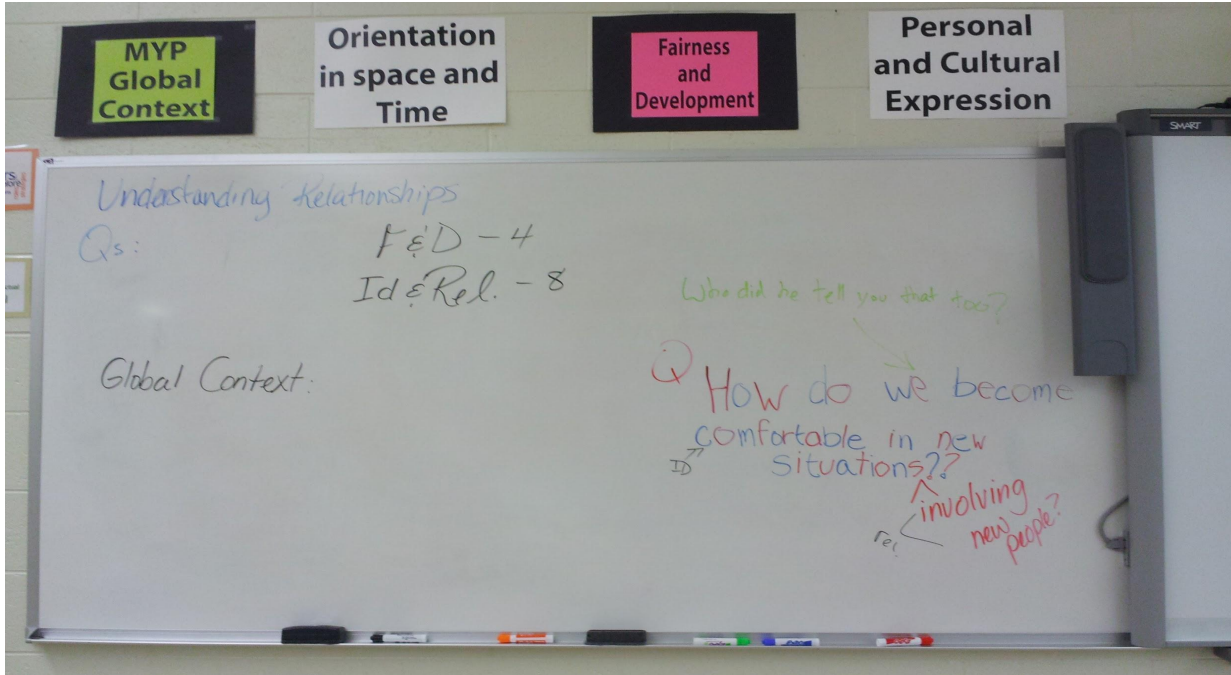 MYP
Global
Context
Orientation
in space and
Time
Fairness
and
Development
Personal
and Cultural
Expression
SMART
Understanding Relationships
Qs:
F & D - 4
Id & Rel. - 8
Global Context:
Who did he tell you that too?
Q How do we become
comfortable in new
ID
situations??
involving
new
people?
rel